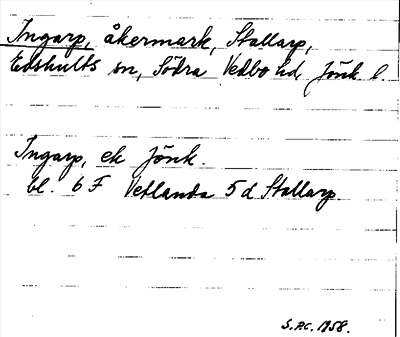 Ingarp, åkermark, Stallarp,
Edshults sn, Södra Vedbo hd, Jönk l.
Ingarp, ek Jönk.
bl. 6 F Vetlanda 5 d Stallarp
S.P.C. 1958.